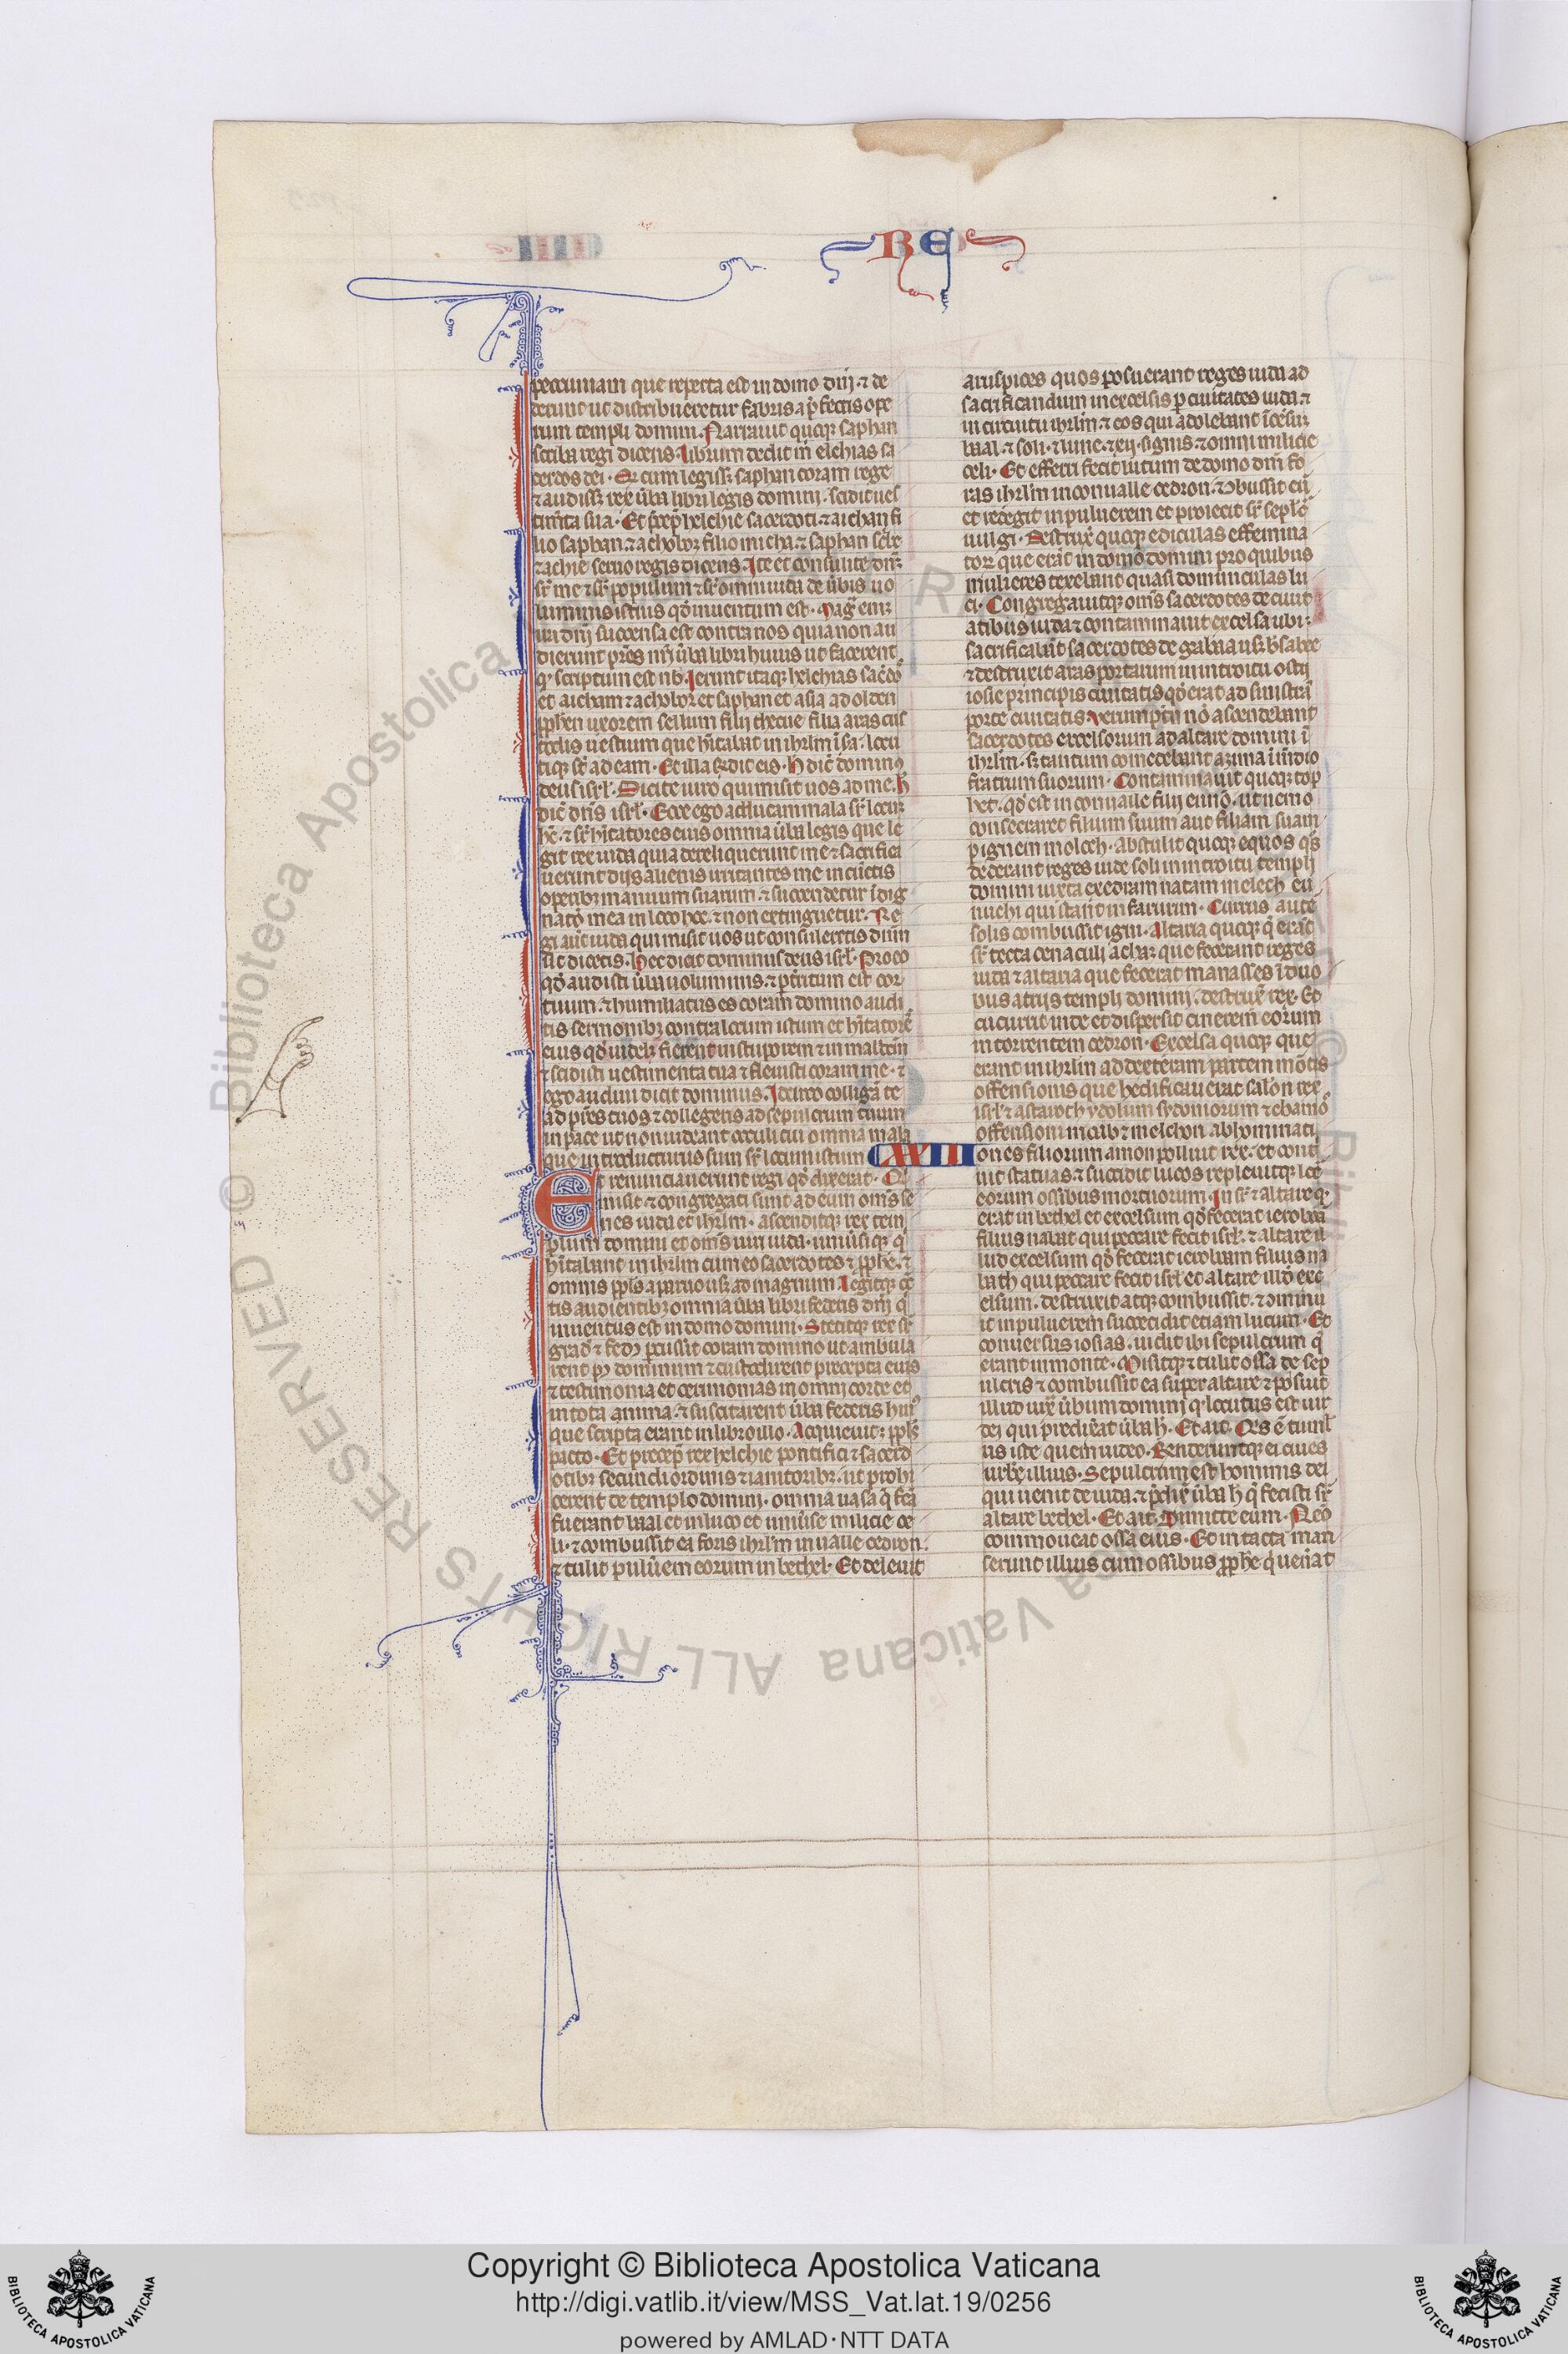 RE
peccuniam que reperta est in domo dnj · ⁊ de
derunt ut distribueretur fabris a p̄fectis ope
rum templi domini. Narrauit quoqꝫ saphan
scriba regi dicens. librum dedit m̄ elchias sa
cerdos dei · Qr cum legissꝫ saphan coram rege
⁊ audissꝫ rex ūba libri legis domini. scidit ues
tim̄ta sua · Et p̄cep̄ helchie sacerdoti ⁊ aichan fi
lio saphan ⁊ acholor filio micha ⁊ saphan sc̄be
⁊ achie seruo regis dicens. Ite et consulite dn̄ꝫ
sꝛ̄ me ⁊ sꝛ̄ populum ⁊ sꝛ̄ omni iuda de ūbis uo
luminis istius qđ inuentum est · Maḡ enī
ira dnj succensa est contra nos quia non au
dierunt pr̄es nr̄j ūba libri huius ut facerent
qꝫ scriptum est nb̄. Ierunt itaqꝫ helchias sac̄do
et aicham ⁊ acholor et saphan et asia ad olden
ꝓphen uxorem sellum filij thecue filia aras cus
todis uestium que hītabat in ihrl̄m ī sa · locu
tiqꝫ st̄ ad eam · Et illa r̄dit eis · h̄ dic̄ dominꝰ
deus isrl̄ · Dicite uiro qui misit uos ad me. h̄
dic̄ dn̄s isrl̄ · Ecce ego adducam mala sꝛ̄ locuꝫ
hc̄ · ⁊ sꝛ̄ hītatores eius omnia ūba legis que le
git rex iuda quia dereliquerunt me ⁊ sacrifica
uerunt dijs alienis irritantes me in cūctis
operibꝫ manuum suarum · ⁊ succendetur īdig
nac̄o mea in loco hoc · ⁊ non extinguetur · Re
gi aūt iuda qui misit uos ut consuleretis dnm̄
sic dicetis. Hec dicit dominus deus isrl̄ · Pro eo
qđ audisti ūba uoluminis · ⁊ p̄tritum est cor
tuum · ⁊ humiliatus es coram domino audi
tis sermonibꝫ contra locum istum et hītatore
eius qđ uidelꝫ fierent in stuporem ⁊ in maldcm̄
⁊ scidisti uestimenta tua ⁊ fleuisti coram me · ⁊
ego audiui dicit dominus. Idcirco colligā te
ad pr̄es tuos ⁊ collegens ad sepulcrum tuum
in pace ut non uideant occuli tui omnia mala
que introducturus sum sꝛ̄ locum istum XXIII
Et renunciauerunt regi qđ dixerat · Q
misit ⁊ congregati sunt ad eum om̄s se
nes iuda et ihrl̄m · ascenditqꝫ rex tem
plum domini et om̄s uiri iuda · uniūsiqꝫ q̄
hītabant in ihrl̄m cum eo sacerdotes ⁊ ꝓphe · ⁊
omnis ppl̄s a paruo usqꝫ ad magnum legitqꝫ cc̄
tis audientibꝫ omnia ūba libri federis dnj q̄
inuentus est in domo domini · Stetitqꝫ rex sꝛ̄
grad̄ ⁊ fedꝰ percussit coram domino ut ambula
rent pꝰ dominum ⁊ custodirent precepta eius
⁊ testimonia et cerimonias in omni corde et
in tota anima · ⁊ suscitarent ūba federis huiꝰ
que scripta erant in libro illo · Acquieuitqꝫ ppl̄s
pacto · Et precep̄ rex helchie pontifici ⁊ sacerd
otibꝫ secundi ordinis ⁊ ianitoribꝫ · ut prohi
cerent de templo domini · omnia uasa q̄ fc̄a
fuerant baal et in luco et uniūse milicie ce
li · ⁊ combussit ea foris ihrl̄m in ualle cedron ·
⁊ tulit puluēem eorum in bethel · Et deleuit
aruspices quos posuerant reges iuda ad
sacrificandum in excelsis p ciuitates iuda · ⁊
in circuitu ihrl̄m · ⁊ eos qui adolebant īcēsuꝫ
baal · ⁊ soli · ⁊ lune · ⁊ xij · signis · ⁊ omni milicie
celi · Et efferri fecit lucum de domo dnj fo
ras ihrl̄m in conualle cedron · ⁊ ꝯbussit eū
et redegit in puluerem et proiecit sꝛ̄ seplc̄
uulgi · Destrux̄ quoqꝫ ediculas effemina
torꝫ que erāt in domo domini pro quibus
mulieres texebant quasi domunculas lu
ci · Congregauitqꝫ om̄s sacerdotes de ciuit
atibus iuda ⁊ contaminauit excelsa ubi ·
sacrificabāt sacerdotes de gabaa usqꝫ b̄sabee
⁊ destruxit aras portarum in introitu ostij
iosie principis ciuitatis qđ erat ad sinistrā
porte ciuitatis · Verumptn̄ nō ascendebant
sacerdotes excelsorum ad altare domini ī
ihrl̄m · sꝫ tantum comedebant azima ī mdio
fratrum suorum · Contaminauit quoqꝫ top
het · qđ est in conualle filij ennō · ut nemo
consecraret filium suum aut filiam suam
p ignem moloch · Abstulit quoqꝫ equos q̄s
dederant reges iude soli in introitu templi
domini iuxta exedram natam melech eu
nuchi qui stabat in farurim · Currus autē
solis combussit igni · Altaria quoqꝫ q̄ erāt
sꝛ̄ tecta cenaculi achaz que fecerant reges
iuda ⁊ altaria que fecerat manasses ī duo
bus atrijs templi domini. destrux̄ rex · Et
cucurrit inde et dispersit cinerem eorum
in torrentem cedron · Excelsa quoqꝫ que
erant in ihrl̄m ad dexteram partem mōtis
offensionis que hedificauerat salōn rex
isrl̄ · ⁊ astaroth ydolum sydoniorum ⁊ chamō
offensioni moab ⁊ melchon abhominati
ones filiorum amon polluit rex · et contri
uit statuas · ⁊ succidit lucos repleuitqꝫ loc̄
eorum ossibus mortuorum · In sꝛ̄ ⁊ altare qꝫ
erat in bethel et excelsum qđ fecerat ieroboā
filius nabat qui peccare fecit isrl̄ · ⁊ altare il
lud excelsum qđ fecerat ieroboam filius na
bath qui peccare fecit isrl̄ et altare illđ exc
elsum · destruxit atqꝫ combussit · ⁊ ꝯminu
it in puluerem succendit etiam lucum · Et
conuersus iosias · uidit ibi sepulcrum q̄
erant in monte · Misitqꝫ ⁊ tulit ossa de sep
ulcris ⁊ combussit ea super altare ⁊ posuit
illud iux̄ ūbum dominj qꝫ locutus est uir
dei qui predix̄at ūba h̄ · Et ait · Qes ē tuml̄
us iste quem uideo · Renderuntqꝫ ei ciues
urbis illius · Sepulcrum est hominis dei
qui uenit de iuda · ⁊ p̄dix̄ ūba h̄ q̄ fecisti sꝛ̄
altare bethel · Et ait · Dimitte eum · Neō
commoueat ossa eius · Et intacta man
serunt illius cum ossibus ꝓphe q̄ uenat
Copyright © Biblioteca Apostolica Vaticana
http://digi.vatlib.it/view/MSS_Vat.lat.19/0256
powered by AMLAD·NTT DATA
BIBLIOTECA APOSTOLICA VATICANA
BIBLIOTECA APOSTOLICA VATICANA
© Biblioteca Apostolica Vaticana ALL RIGHTS RESERVED